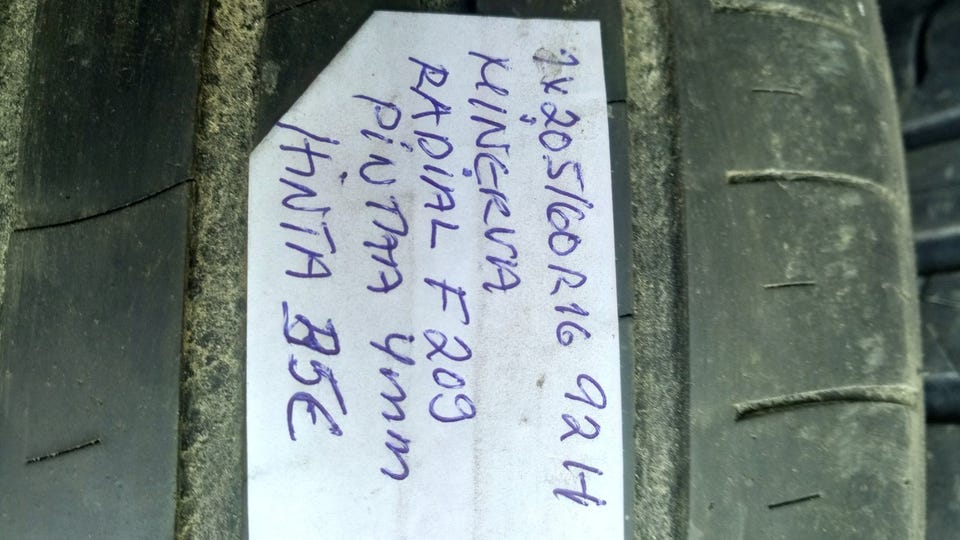 1x205/60R16 92H
MINERVA
RADIAL F209
PINTAA 4mm
HINTA 35€